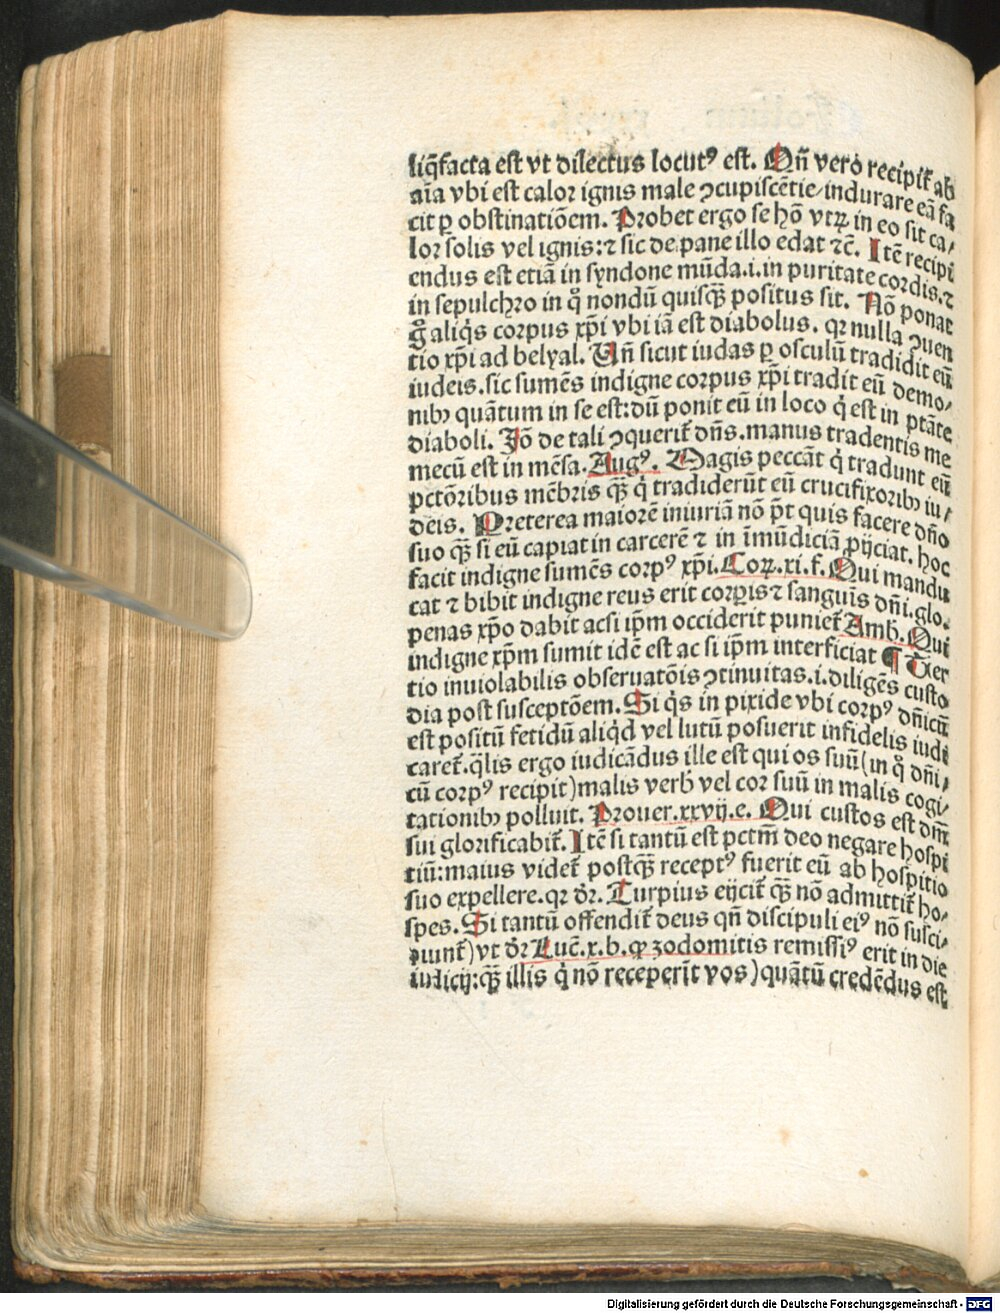 liq̃facta est vt dilectus locutꝰ est. Qñ vero recipit̃ ab
aīa vbi est calor ignis male ꝯcupiscētie/indurare eā fa
cit ꝑ obstinatiōem. Probet ergo se hō vtꝝ in eo sit ca/
lor solis vel ignis:⁊ sic de pane illo edat ⁊c̄. Itē recipi
endus est etiā in syndone mūda.i.in puritate cordis.⁊
in sepulchro in q̊ nondū quisq̃ʒ positus sit. Nō ponat
g̊ aliq̇s corpus xp̄i vbi iā est diabolus. qꝛ nulla ꝯuen
tio xp̄i ad belyal. Uñ sicut iudas ꝑ osculū tradidit eū
iudeis.sic sumēs indigne corpus xp̄i tradit eū demo/
nibꝫ quātum in se est:dū ponit eū in loco q̇ est in ptāte
diaboli. Iō de tali ꝯquerit̃ dñs.manus tradentis me
mecū est in mēsa. Augꝰ. Magis peccāt q̇ tradunt eū
pctōribus mēbris q̃ʒ q̇ tradiderūt eū crucifixoribꝫ iu/
deis. Preterea maiorē iniuriā nō p̄t quis facere dño
suo q̃ʒ si eū capiat in carcerē ⁊ in īmūdiciā ꝓijciat. hoc
facit indigne sumēs corpꝰ xp̄i. Coꝝ.xi.f. Qui mandu
cat ⁊ bibit indigne reus erit corꝑis ⁊ sanguīs dñi.glo.
penas xp̄o dabit acsi ip̄m occiderit puniet̃ Amb. Qui
indigne xp̄m sumit idē est ac si ip̄m interficiat ¶ Ter
tio inuiolabilis obseruatōis ꝯtinuitas.i.diligēs custo
dia post susceptōem. Si q̇s in pixide vbi corpꝰ dñicū
est positū fetidū aliq̇d vel lutū posuerit infidelis iudi
caret̃.q̄lis ergo iudicādus ille est qui os suū(in q̊ dñi/
cū corpꝰ recipit)malis verƀ vel cor suū in malis cogi/
tationibꝫ polluit. Prouer.xxvij.e. Qui custos est dñi
sui glorificabit̃. Itē si tantū est pctm̄ deo negare hospi
tiū:maius videt̃ postq̃ʒ receptꝰ fuerit eū ab hospitio
suo expellere.qꝛ dr̄. Turpius eijcit̃ q̃ʒ nō admittit̃ ho/
spes. Si tantū offendit̃ deus qñ discipuli eiꝰ nō susci/
piunt̃)vt dr̄ Luc̄.x.b.ꝙ zodomitis remissiꝰ erit in die
iudicij:q̃ʒ illis q̇ nō receperīt vos)quātū credēdus est
Digitalisierung gefördert durch die Deutsche Forschungsgemeinschaft - DFG